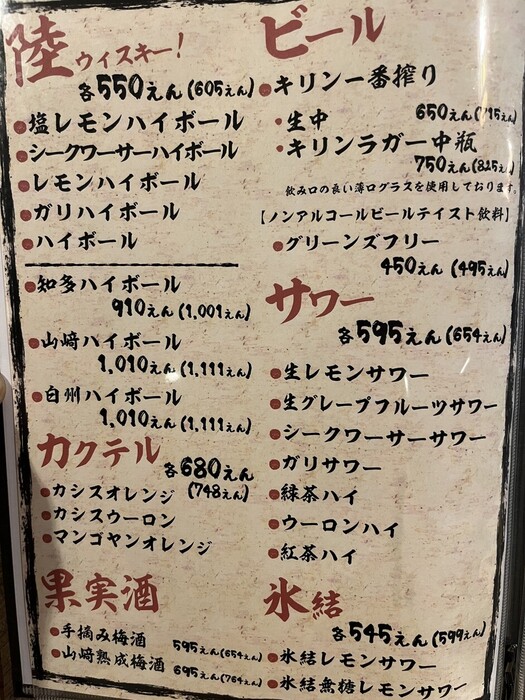 陸 ウィスキー!
各550えん(605えん)
塩レモンハイボール
シークワーサーハイボール
レモンハイボール
ガリハイボール
ハイボール
知多ハイボール
910えん(1,001えん)
山﨑ハイボール
1,010えん(1,111えん)
白州ハイボール
1,010えん(1,111えん)
カクテル
各680えん
(748えん)
カシスオレンジ
カシスウーロン
マンゴヤンオレンジ
果実酒
手摘み梅酒
595えん(654えん)
山﨑熟成梅酒
695えん(764えん)
ビール
キリン一番搾り
・生中
650えん(715えん)
・キリンラガー中瓶
750えん(825えん)
飲み口の良い薄口グラスを使用しております。
【ノンアルコールビールテイスト飲料】
グリーンズフリー
450えん(495えん)
サワー
各595えん(654えん)
生レモンサワー
生グレープフルーツサワー
シークワーサーサワー
ガリサワー
緑茶ハイ
ウーロンハイ
紅茶ハイ
氷結
各545えん(599えん)
氷結レモンサワー
氷結無糖レモンサワー